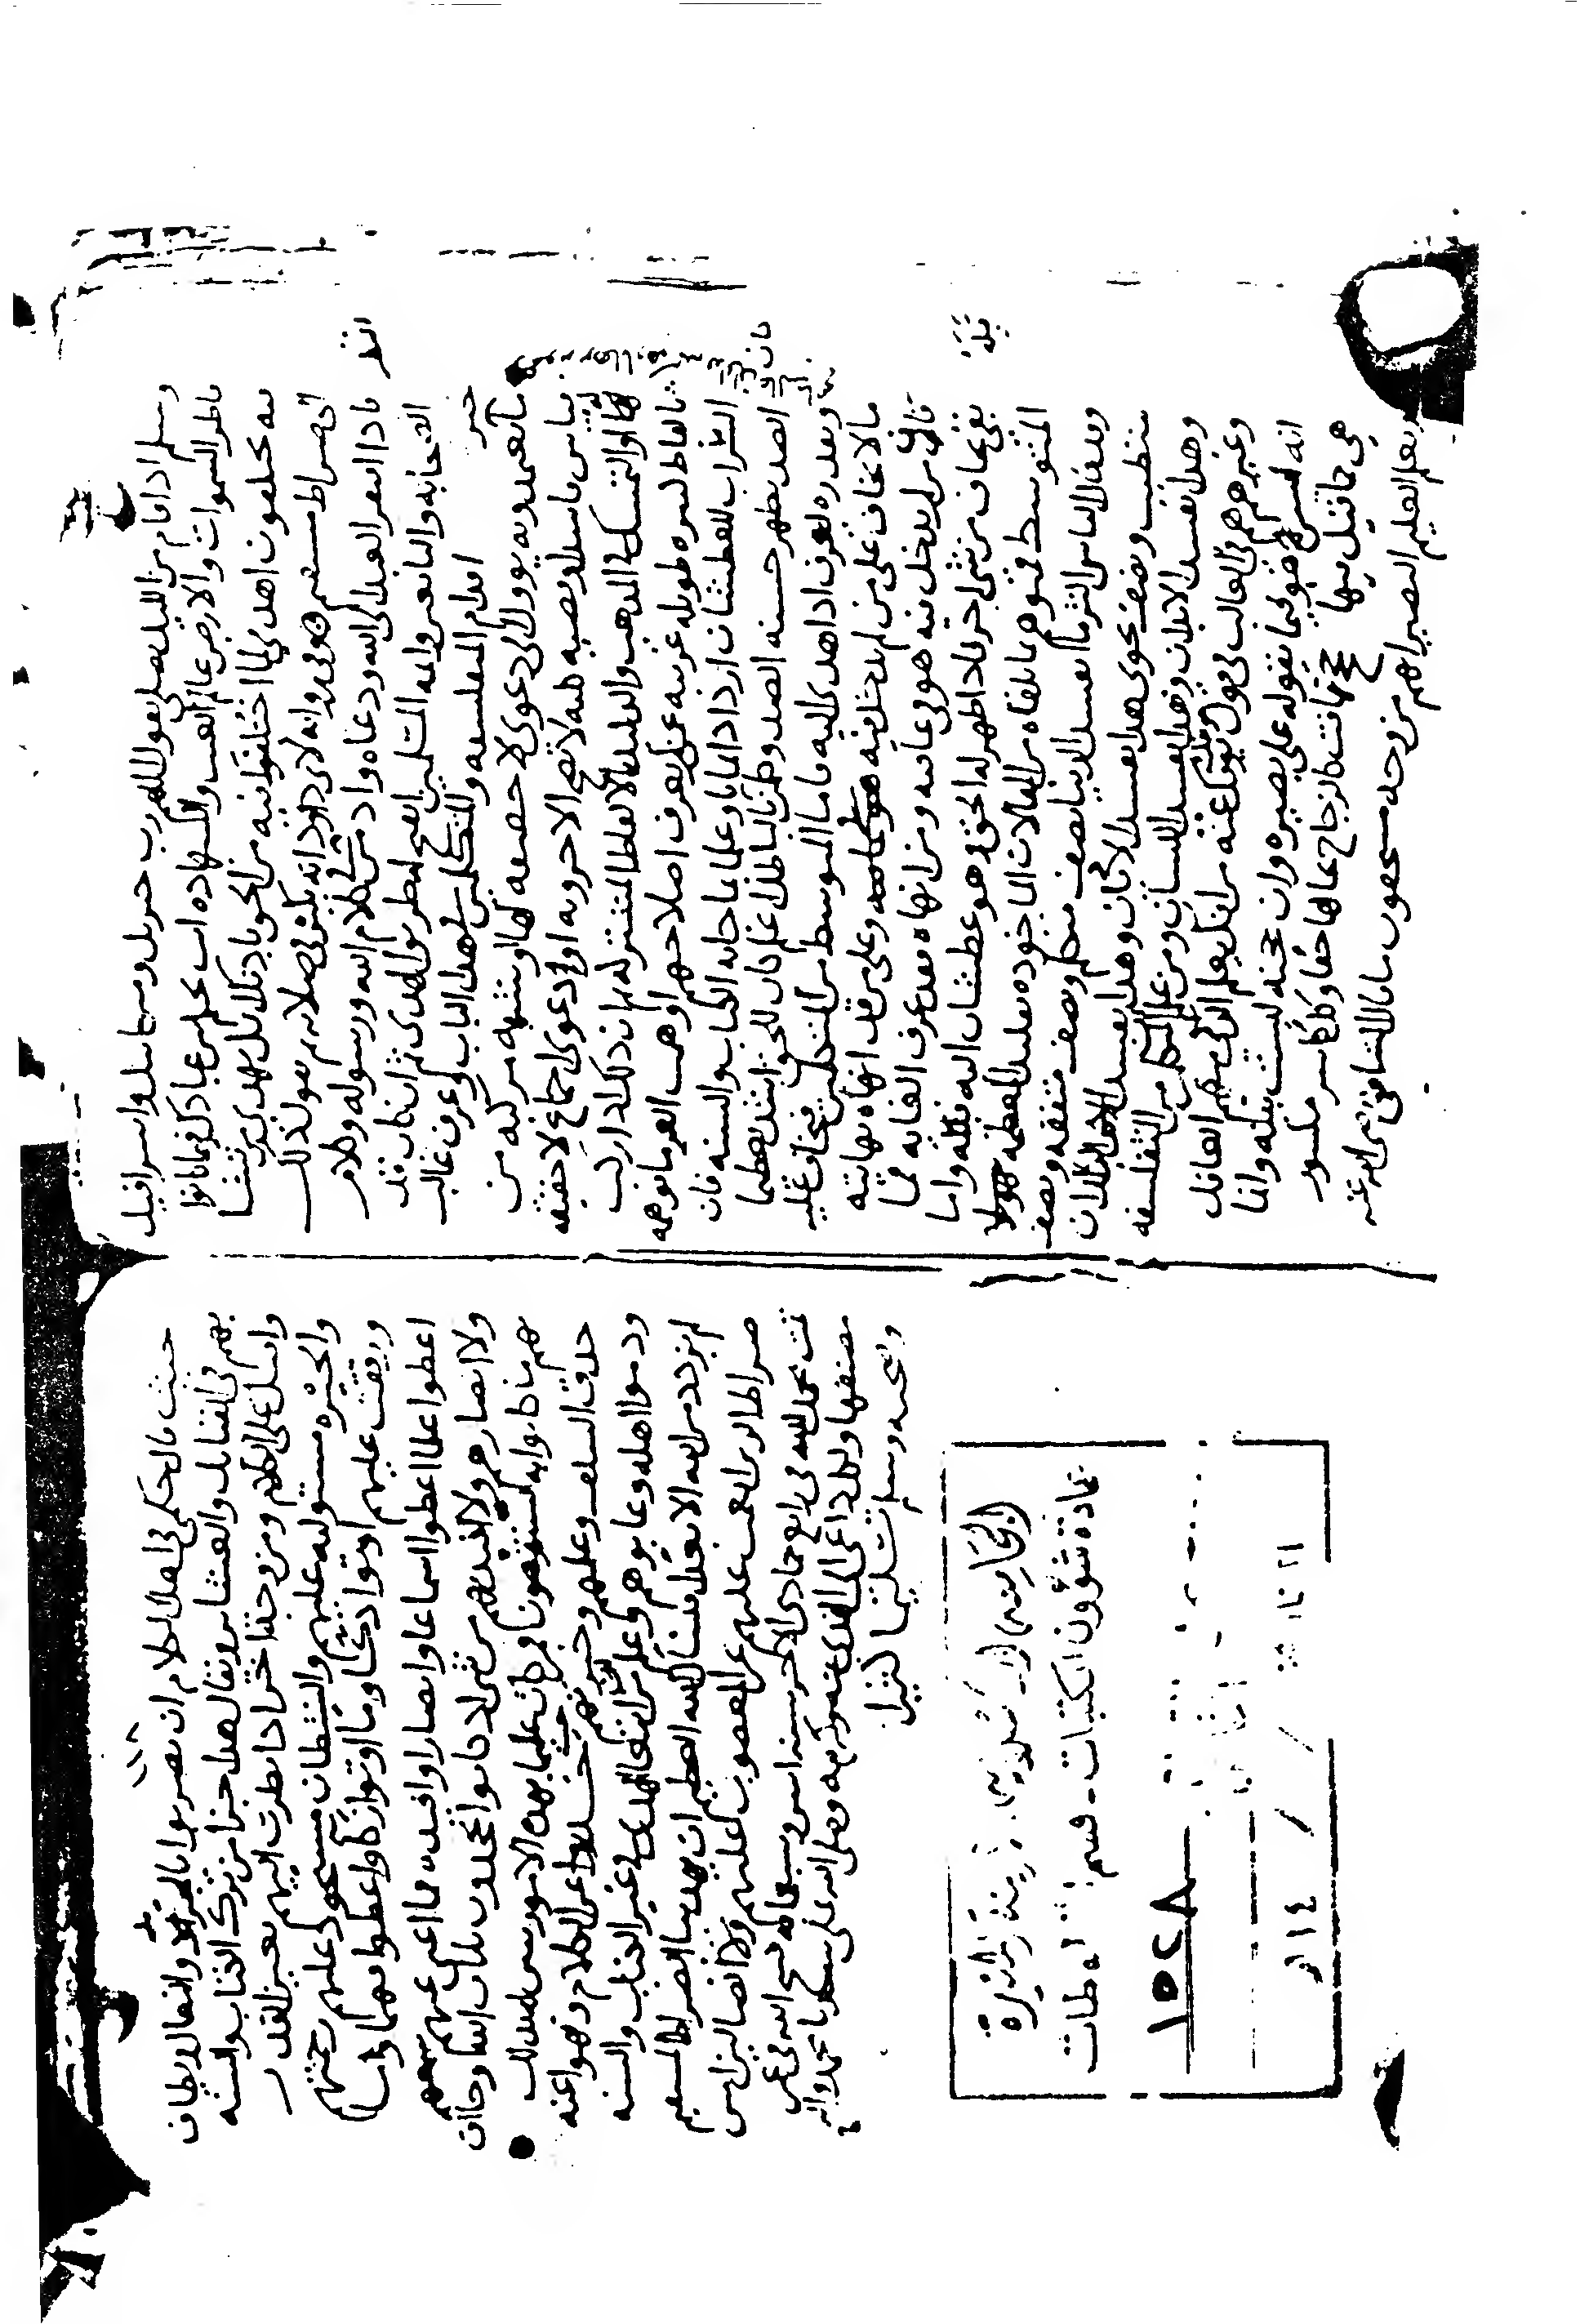 وسلم اذا قام من الليل يصلي يقول اللهم رب جبريل وميكائيل واسرافيل
فاطر السموات والارض عالم الغيب والشهاده انت تحكم بين عبادك فيما كانوا
فيه يختلفون اهدني لما اختلفوا فيه من الحق باذنك انك تهدي من تشا
الى صراط مستقيم وفي روايه لابي داود انه يكبر في صلاته ثم يقول ذلك
فاذا افتقر العبد الى الله ودعاه وادمن النظر في كلام الله ورسوله وكلام
الصحابه والتابعين وايمه المسلمين انفتح له طريق الهدى ثم ان كان قد
خبر اقدام المتفلسفه والمتكلمين في هذا الباب وعرف غالب
ما يعتمدونه يوول الى دعوى لا حقيقه لها او شبهه مركبه من
قياس فاسد او قضيه كليه لا تصح الا جزويه او دعوى اجماع لا حقيقه
له او التمسك في المذهب والدليل بالالفاظ المشتركه ثم ان ذلك اذا ركب
بالفاظ كثيره طويله غريبه عن من لم يعرف اصطلاحهم اوهمت الغر ما يوهمه
السراب للعطشان ازداد ايمانا وعلما بما جا به الكتاب والسنه فان
الضد يظهر حسنه الضد وكل من كان بالباطل اعلم كان للحق اشد تعظيما
وبقدره اعرف اذا هدي اليه فاما المتوسط من المتكلمين فيخاف عليه
ما لا يخاف على من لم يدخل فيه وعلى من قد انهاه نهايته
فان من لم يدخل فيه هو في عافيه ومن انهاه فقد عرف الغايه فما
بقي يخاف من شي اخر فاذا ظهر له الحق وهو عطشان اليه قبله واما
المتوسط فمتوهم بما تلقاه من المقالات الماخوذه تقليدا لمعظمه هولا
وقد قال الناس اكثر ما يفسد الدنيا نصف متكلم ونصف متفقه ونصف
متطبب ونصف نحوي هذا يفسد الاديان وهذا يفسد البلدان
وهذا يفسد الابدان وهذا يفسد اللسان ومن علم المتكلمين من المتفلسفه
وغيرهم هم في الغالب في قول مختلف يوفك عنه من افك يعلم الذكي منهم العاقل
انه ليس هو فيما يقوله على بصيره وان حجته ليست ببينه وانما
هي كما قيل فيها حجج تهافت كالزجاج تخالها حقا وكل كاسر مكسور
ويعلم العليم البصير انهم من وجه مستحقون ما قاله الشافعي رضي الله عنه
حيث قال حكمي في اهل الكلام ان يضربوا بالجريد والنعال ويطاف
بهم في القبائل والعشاير ويقال هذا جزا من ترك الكتاب والسنه
واقبل على الكلام ومن وجه اخر اذا نظرت اليهم بعين القدر
والحيره مستوليه عليهم والشيطان مستحوذ عليهم رحمتهم
ورفقت عليهم اوتوا ذكا وما اوتوا زكا واعطوا فهوما
اعطوا علوما اعطوا اسماعا وابصارا وافيده فما اغنى عنهم سمعهم
ولا ابصارهم ولا افيدتهم من شي اذ كانوا يجحدون بايات الله وحاق
بهم ما كانوا به يستهزون ومن كان عليما بهذه الامور تبين له بذلك
حذق السلف وعلمهم وخبرتهم حيث حذروا عن الكلام ونهوا عنه
وذموا اهله وعابوهم وعلم ان من ابتغى الهدى في غير الكتاب والسنه
لم يزدد من الله الا بعدا فنسال الله العظيم ان يهدينا الصراط المستقيم
صراط الذين انعمت عليهم غير المغضوب عليهم ولا الضالين امين
تمت بحمد الله في رابع جمادى الاخر سنه اثنين وسبعمايه فسح الله في عمر
مصنفها ولكل داعي الى الهدى بمنه وكرمه وصلى الله على سيدنا محمد واله
وصحبه وسلم تسليما كثيرا
الجامعة الاسلامية بالمدينة المنورة
عمادة شؤون المكتبات - قسم المخطوطات
١٥٢٨
١٤ هـ